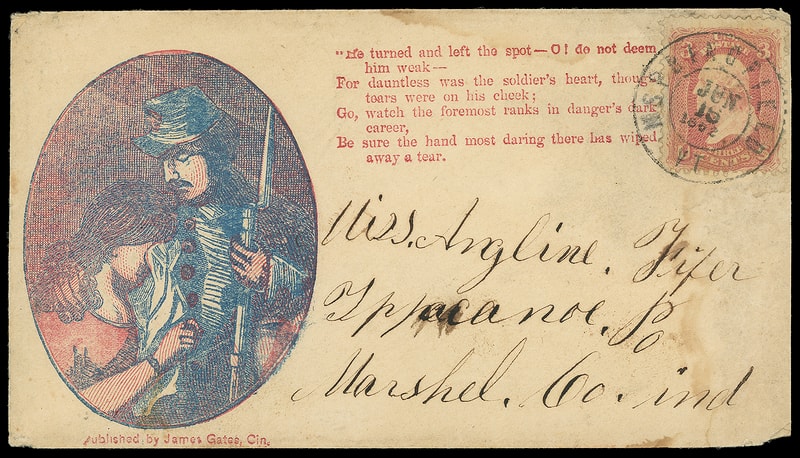 "He turned and left the spot—O! do not deem
him weak—
For dauntless was the soldier's heart, though
tears were on his cheek;
Go, watch the foremost ranks in danger's dark
career,
Be sure the hand most daring there has wiped
away a tear.
JUN
18
1862
CENTS
Miss. Angline. Fifer
Tppacanoe. Po
Marshel. Co. ind
Published by James Gates, Cin.